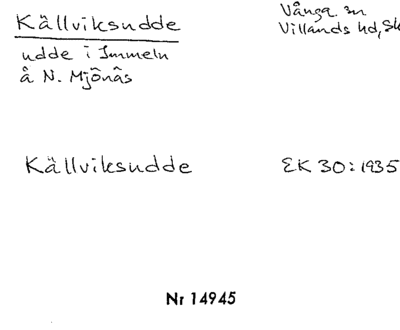 Källviksudde
Vånga sn
Villands hd, Sk
udde i Immeln
å N. Mjönäs
Källviksudde
EK 30:1935
Nr 14945